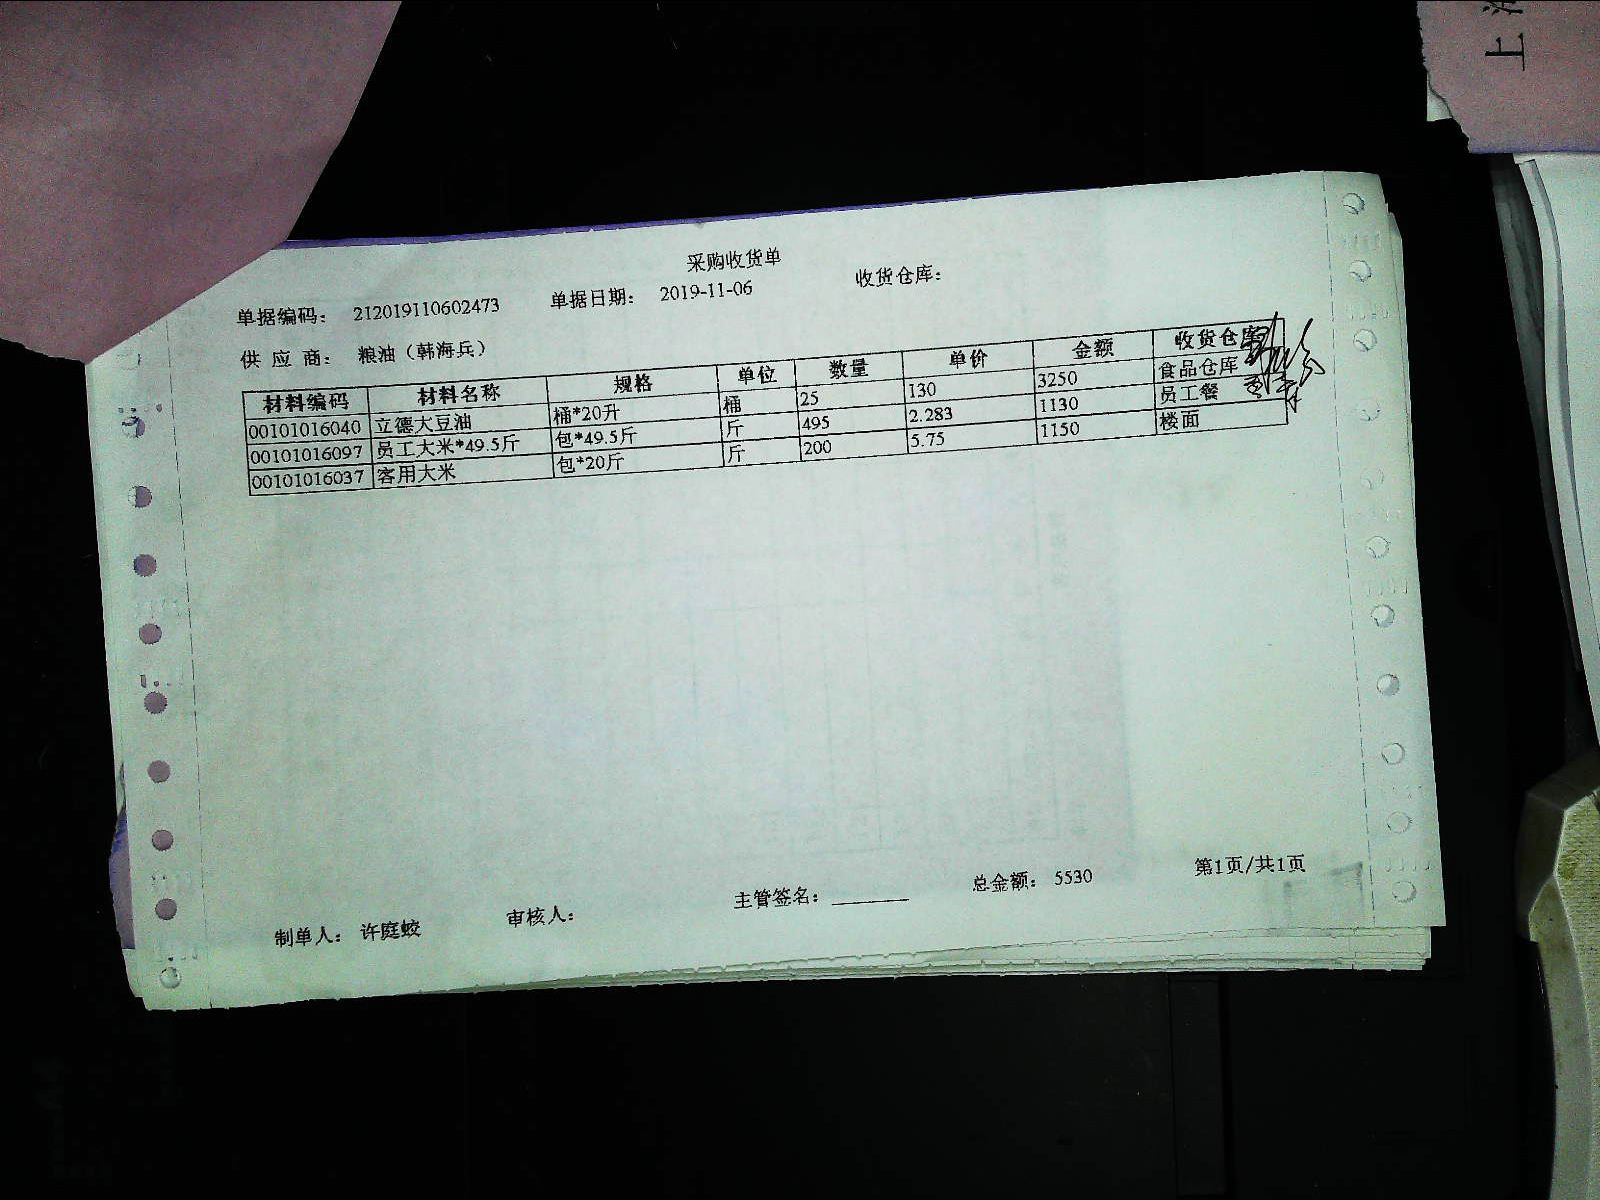 采购收货单
单据编码： 212019110602473 单据日期： 2019-11-06 收货仓库：
供 应 商： 粮油（韩海兵）
材料编码 材料名称 规格 单位 数量 单价 金额 收货仓库
00101016040 立德大豆油 桶*20升 桶 25 130 3250 食品仓库
00101016097 员工大米*49.5斤 包*49.5斤 斤 495 2.283 1130 员工餐
00101016037 客用大米 包*20斤 斤 200 5.75 1150 楼面
制单人： 许庭蛟 审核人： 主管签名： 总金额： 5530 第1页/共1页
上海